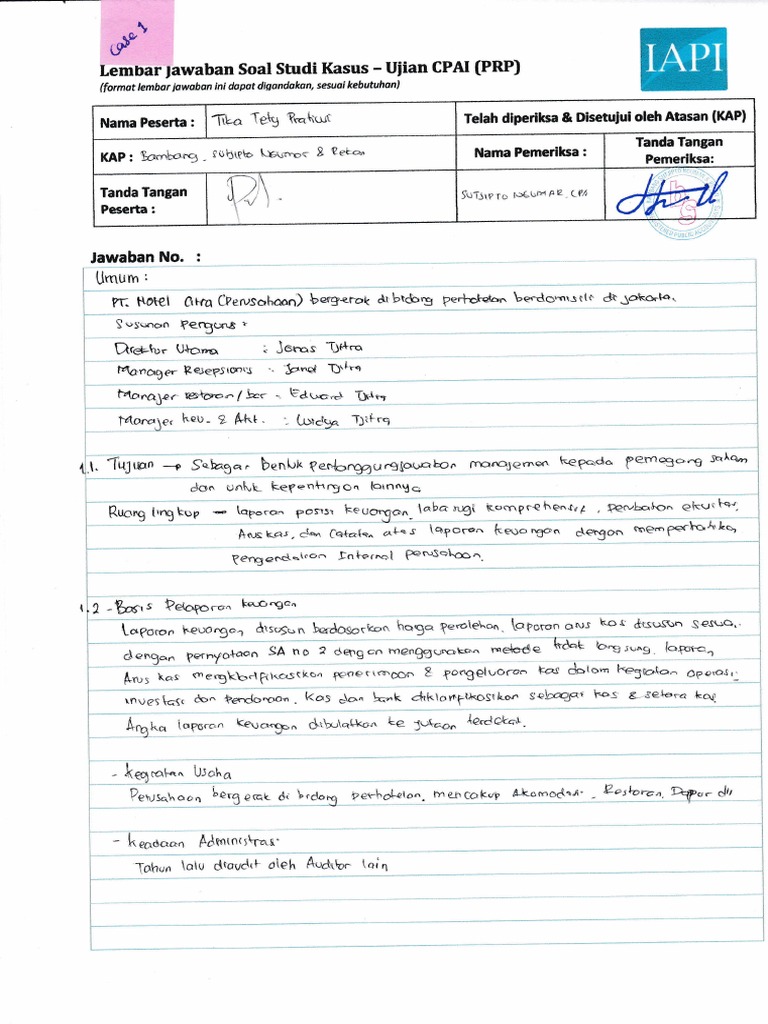 Case 1
IAPI
Lembar Jawaban Soal Studi Kasus – Ujian CPAI (PRP)
(format lembar jawaban ini dapat digandakan, sesuai kebutuhan)
Nama Peserta : Tika Tety Pratiwi
Telah diperiksa & Disetujui oleh Atasan (KAP)
KAP : Bambang, Sutjipto Ngumar & Rekan
Nama Pemeriksa :
Tanda Tangan Pemeriksa:
Tanda Tangan Peserta :
SUTJIPTO NGUMAR, CPA
Jawaban No. :
Umum :
PT. Hotel Citra (Perusahaan) bergerak di bidang perhotelan berdomisili di jakarta.
Susunan Pengurus :
Direktur Utama : Jonas Tjitra
Manager Resepsionis : Janet Tjitra
Manajer restoran/bar : Eduard Tjitra
Manajer keu. & Akt. : Widya Tjitra
1.1. Tujuan → Sebagai bentuk pertanggungjawaban manajemen kepada pemegang saham
dan untuk kepentingan lainnya
Ruang lingkup → laporan posisi keuangan, laba rugi komprehensif, perubahan ekuitas,
Arus kas, dan Catatan atas laporan keuangan dengan memperhatikan
pengendalian Internal perusahaan.
1.2 - Basis Pelaporan keuangan
Laporan keuangan disusun berdasarkan harga perolehan, laporan arus kas disusun sesuai
dengan pernyataan SA no 2 dengan menggunakan metode tidak langsung, laporan
Arus kas mengklarifikasikan penerimaan & pengeluaran kas dalam kegiatan operasi,
investasi dan Pendanaan. Kas dan bank diklasifikasikan sebagai kas & setara kas
Angka laporan keuangan dibulatkan ke jutaan terdekat.
- Kegiatan Usaha
Perusahaan bergerak di bidang perhotelan, mencakup Akomodasi, Restoran, Dapur dll
- Keadaan Administrasi
Tahun lalu diaudit oleh Auditor lain